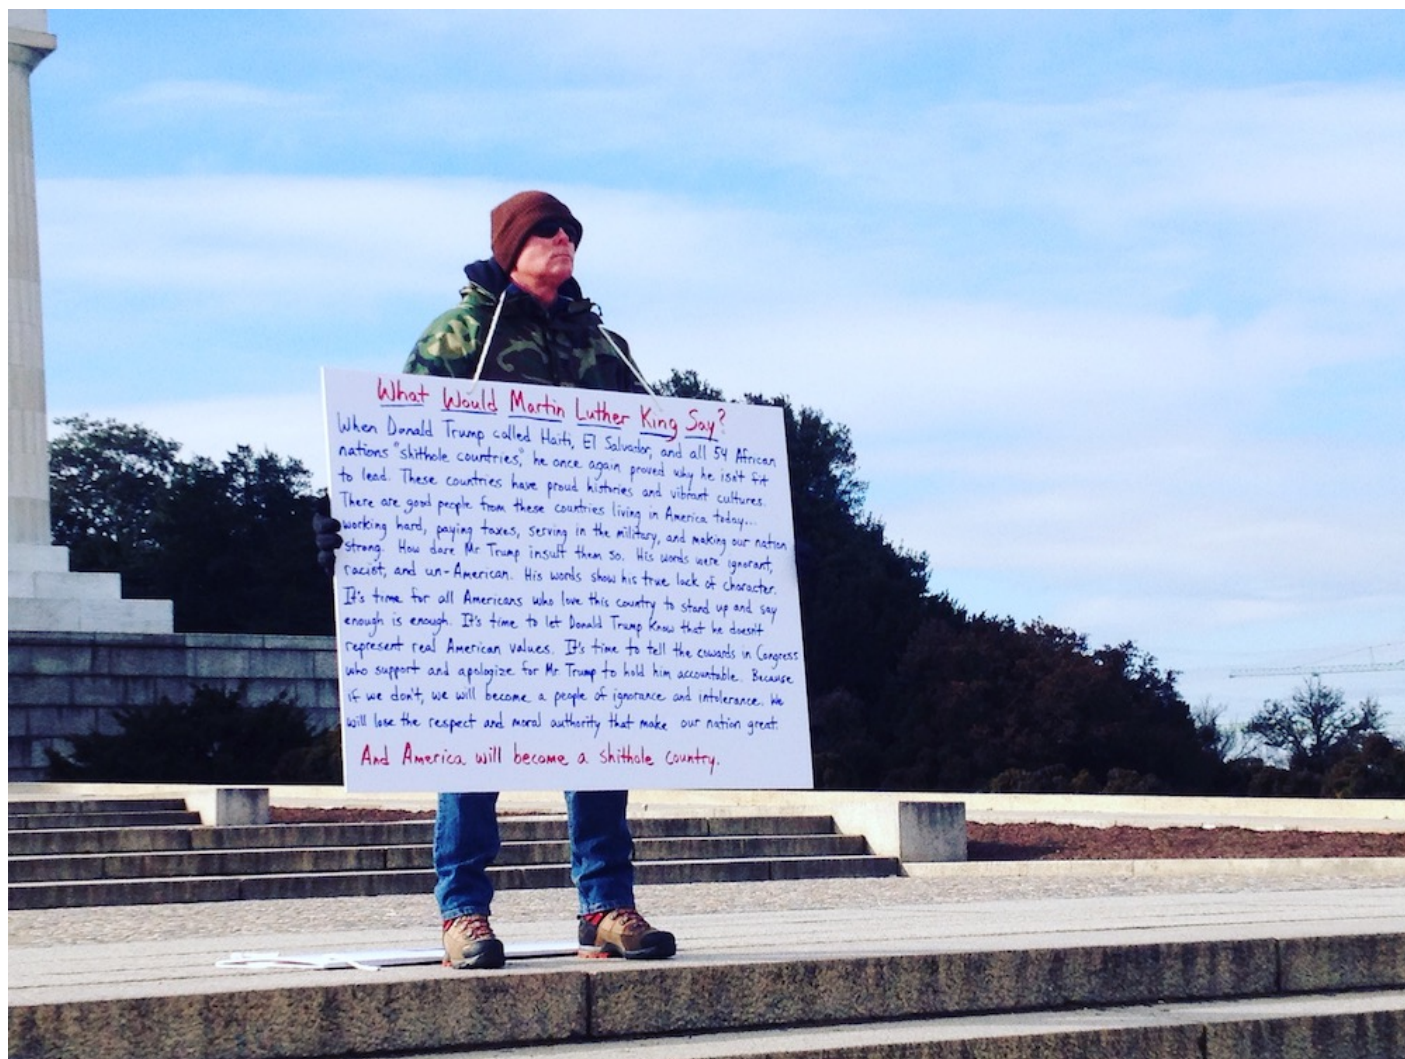 What Would Martin Luther King Say?
When Donald Trump called Haiti, El Salvador, and all 54 African
nations "shithole countries," he once again proved why he isn't fit
to lead. These countries have proud histories and vibrant cultures.
There are good people from these countries living in America today...
working hard, paying taxes, serving in the military, and making our nation
strong. How dare Mr Trump insult them so. His words were ignorant,
racist, and un-American. His words show his true lack of character.
It's time for all Americans who love this country to stand up and say
enough is enough. It's time to let Donald Trump know that he doesn't
represent real American values. It's time to tell the cowards in Congress
who support and apologize for Mr Trump to hold him accountable. Because
if we don't, we will become a people of ignorance and intolerance. We
will lose the respect and moral authority that make our nation great.
And America will become a shithole country.